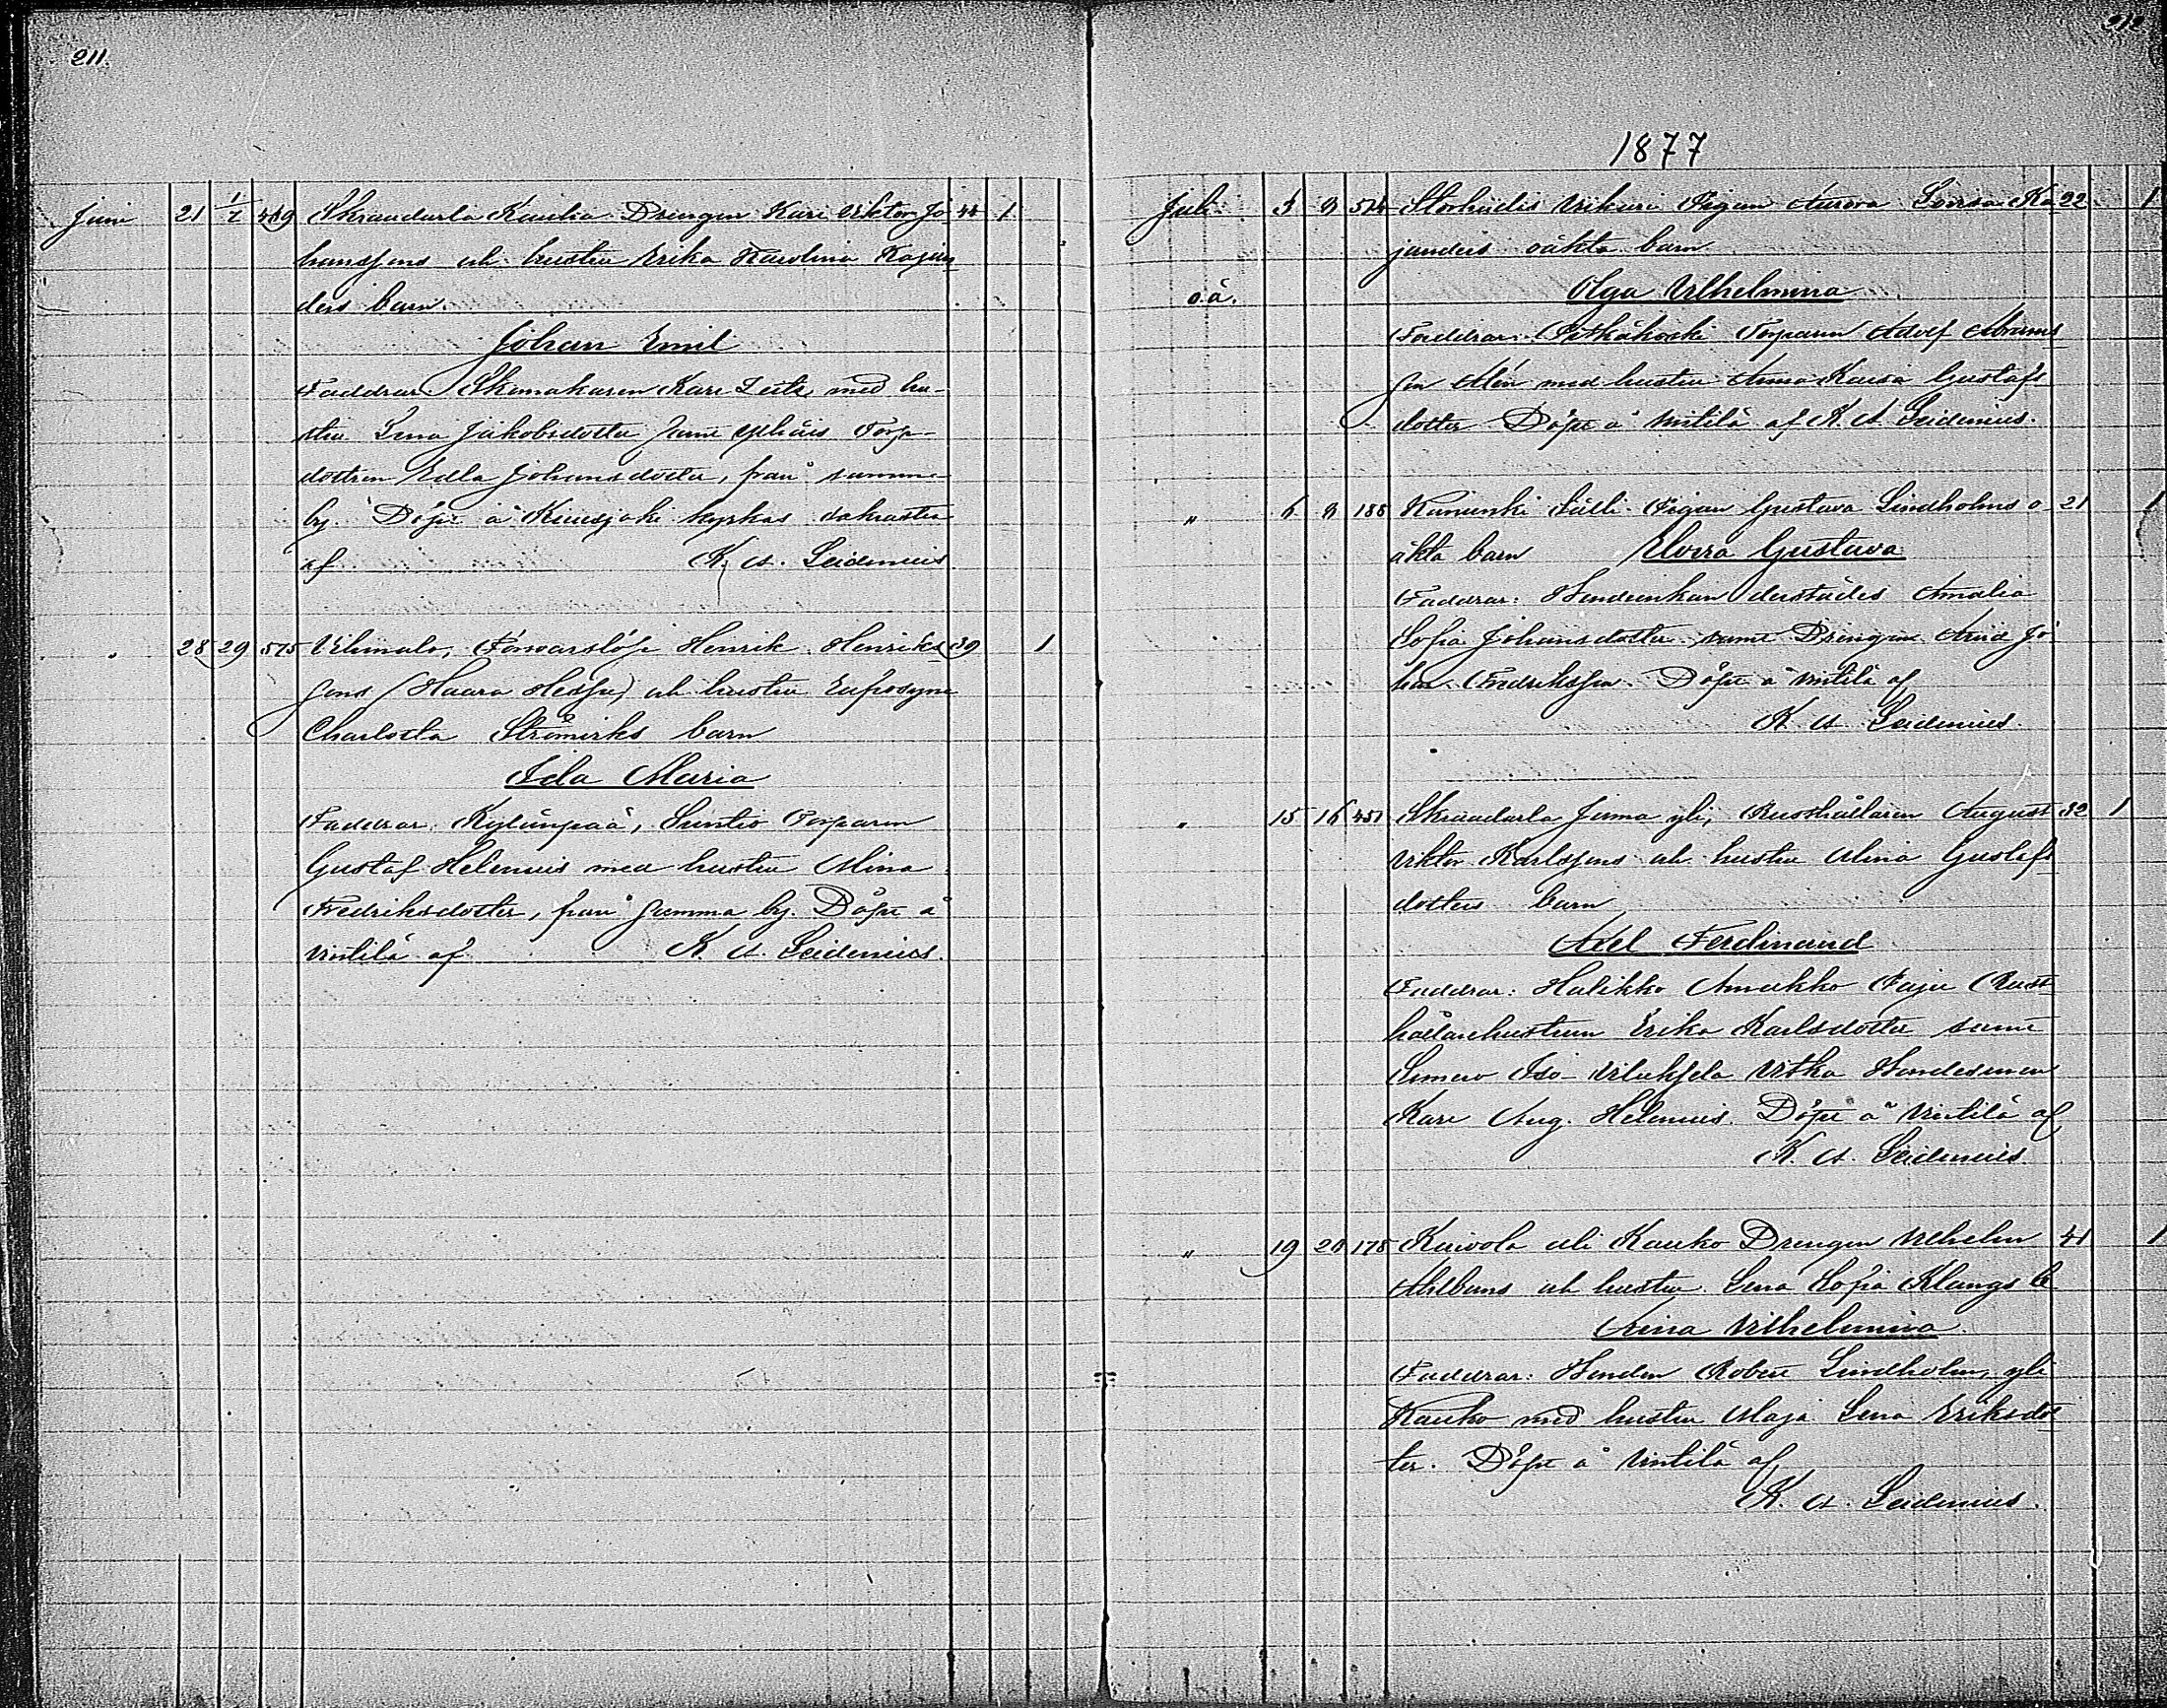 211.
Juni 21 1/7 409 Skraudarla Kaulia Drengen Karl Viktor Jo- 44 1
hanssons och hustru Erika Karolina Kajan
ders barn.
Johan Emil
Faddrar Skomakaren Karl med hu-
stru Lena Jakobsdotter samt Torp-
dottren Edla Johansdotter, från samma
by. Döpt å Kiusjoki kyrkas sakrastia
af K. A. Leidenius.
" 28 29 575 Vilimala, Försvarslöse Henrik Henriks 39 1
sons (Haara ) och hustru Eufrosyne
Charlotta Strömirks barn
Ida Maria
Faddrar: Kylänpää, Suntio Torparen
Gustaf Helenius med hustru Mina
Fredriksdotter, från samma by. Döpt å
Vintilä af K. A. Leidenius.
212
1877
Juli 3 8 514 Storhidis Vikari Pigan Aurora Lovisa Ka 22 1
janders oäkta barn
oä. Olga Vilhelmina
Faddrar: Pitkäkoski Torparen Adolf Abrams
son Alén med hustru Anna Kaisa Gustafs
dotter Döpt å Vintilä af K. A. Leidenius.
" 6 8 188 Kanunki Tülli Pigan Gustava Lindholms o 21 1
äkta barn Elvira Gustava
Faddrar: Bondeenkan derstädes Amalia
Sofia Johansdotter, samt Drengen Arvid Jo
han Fredriksson. Döpt å Vintilä af
K. A. Leidenius.
" 15 16 451 Skraudarla Juma yli, Rusthållaren August 32 1
Viktor Karlssons och hustru Mina Gustafs
dotters barn
Axel Ferdinand
Faddrar: Halikko Amukko Paju Rust
hållarehustrun Erika Karlsdotter samt
Somero Iso-Viluksela Vitka Bondesonen
Karl Aug. Helenius. Döpt å Vintilä af
K. A. Leidenius.
" 19 20 178 Kaivola ali Kauko Drengen Vilhelm 41 1
Ahlboms och hustru Lena Sofia Klangs b.
Aina Vilhelmina
Faddrar: Bonden Robert Lindholm, yli
Kauko med hustru Maja Lena Eriksdot
ter. Döpt å Vintilä af
K. A. Leidenius.